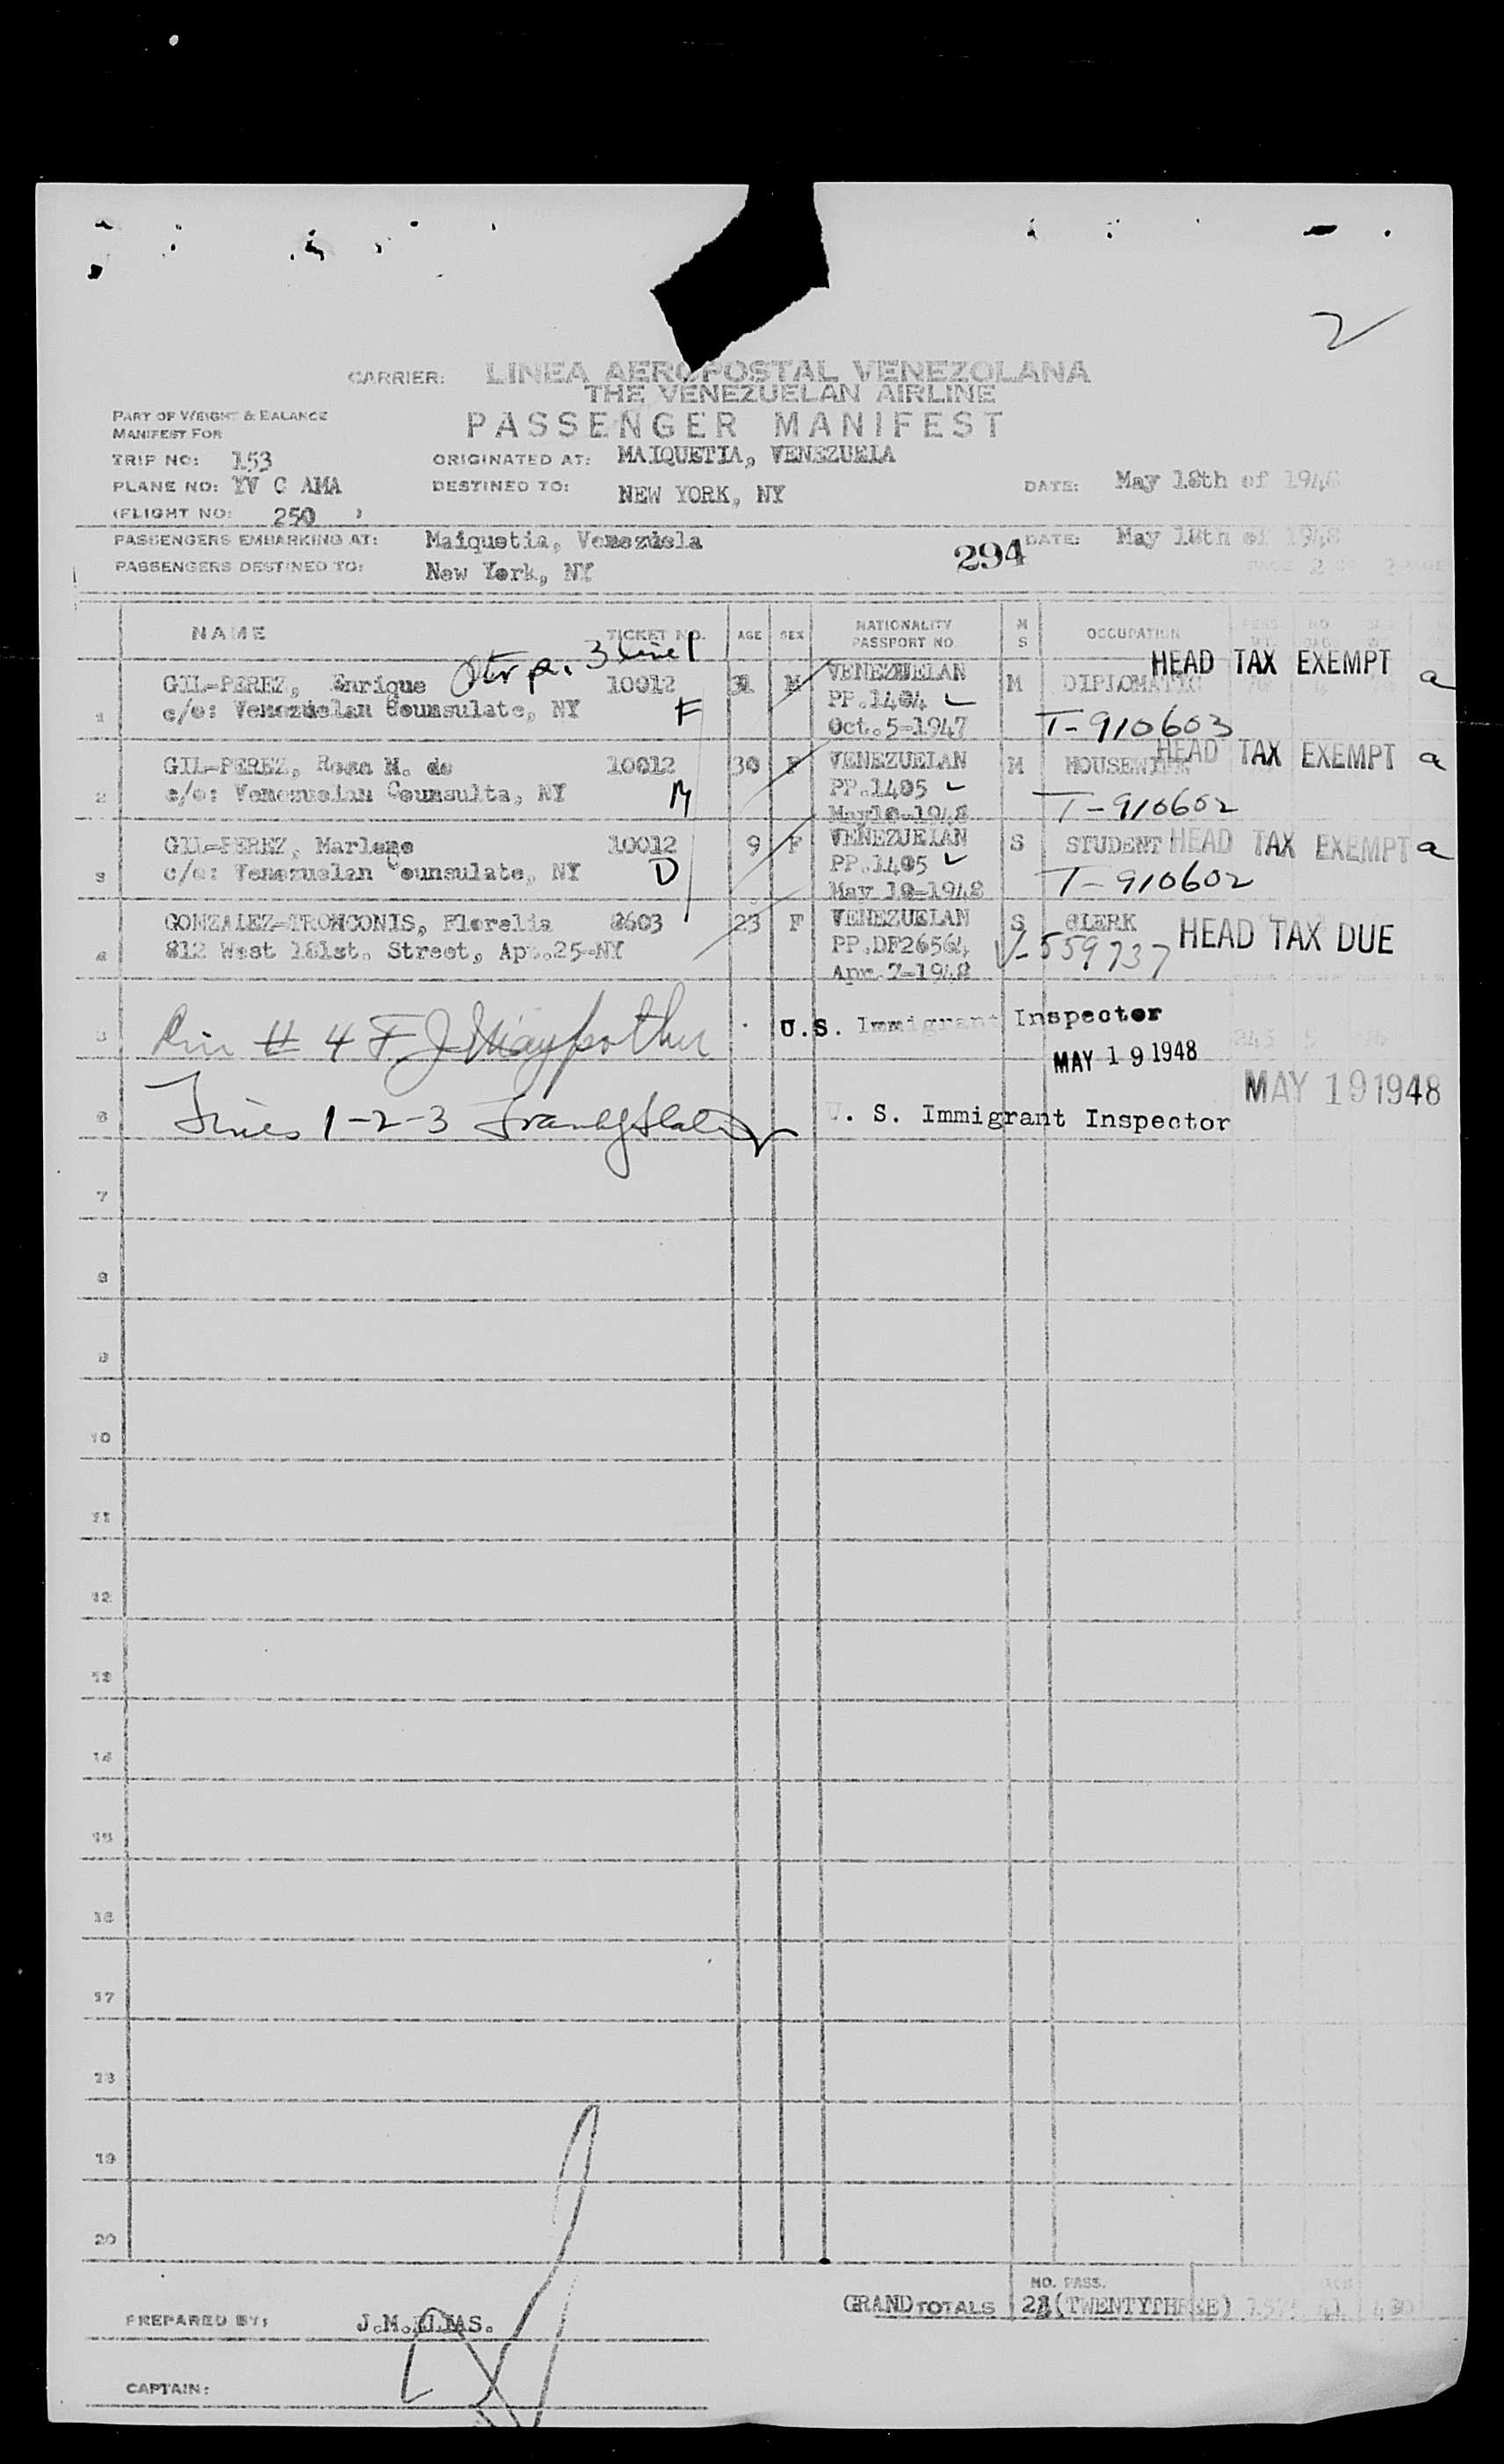 2
CARRIER: LINEA AEROPOSTAL VENEZOLANA
THE VENEZUELAN AIRLINE
PART OF WEIGHT & BALANCE
MANIFEST FOR
PASSENGER MANIFEST
TRIP NO: 153 ORIGINATED AT: MAIQUETIA, VENEZUELA
PLANE NO: YV C AMA DESTINED TO: NEW YORK, NY DATE: May 18th of 1948
(FLIGHT NO: 250 )
PASSENGERS EMBARKING AT: Maiquetia, Venezuela 294 DATE: May 18th of 1948
PASSENGERS DESTINED TO: New York, NY PAGE 2 OF
NAME TICKET NO. AGE SEX NATIONALITY PASSPORT NO M S OCCUPATION
p. 3 line 1
HEAD TAX EXEMPT a
GIL-PEREZ, Enrique 10012 31 M VENEZUELAN M DIPLOMATIC
1 c/o: Venezuelan Counsulate, NY F PP.1404
Oct.5-1947 T-910603
HEAD TAX EXEMPT a
GIL-PEREZ, Rosa M. de 10012 30 F VENEZUELAN M HOUSEWIFE
2 c/o: Venezuelan Counsulta, NY M PP.1405
May10-1948 T-910602
GIL-PEREZ, Marlene 10012 9 F VENEZUELAN S STUDENT HEAD TAX EXEMPT a
3 c/o: Venezuelan Counsulate, NY D PP.1405
May 10-1948 T-910602
GONZALEZ-TRONCONIS, Florelia 8603 23 F VENEZUELAN S CLERK
4 812 West 181st. Street, Apt.25-NY PP.DF26564 V-559737 HEAD TAX DUE
Apr.7-1948
5 # 4 F J U.S. Immigrant Inspector
MAY 19 1948
MAY 19 1948
6 Lines 1-2-3 U. S. Immigrant Inspector
7
8
9
10
11
12
13
14
15
16
17
18
19
20
NO. PASS.
GRAND TOTALS 23 (TWENTYTHREE)
PREPARED BY: J.M.
CAPTAIN: